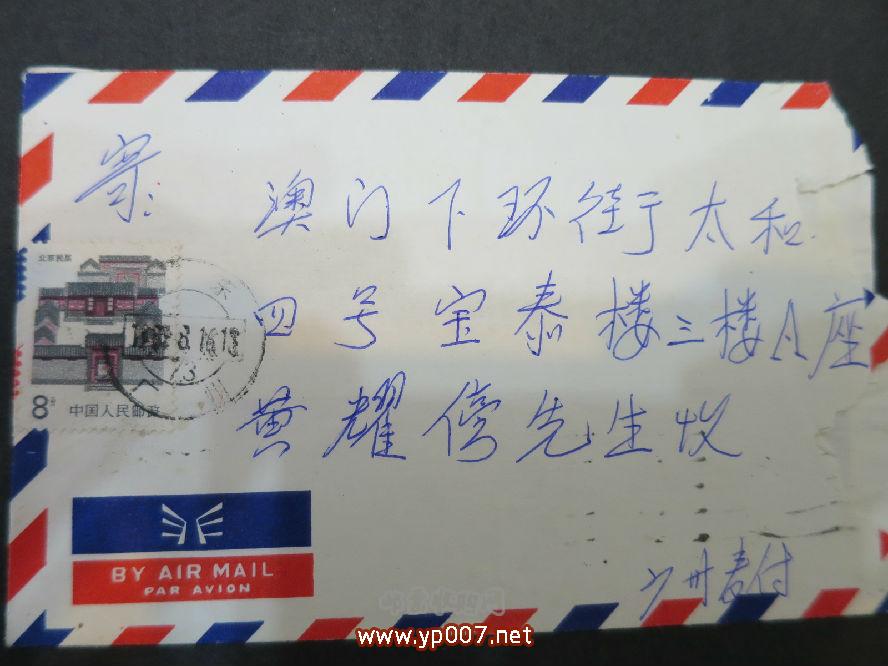 寄:
澳门下环街太和
四号宝泰楼三楼A座
黄耀傍先生收
广州春付
北京民居
8分 中国人民邮政
BY AIR MAIL
PAR AVION
www.yp007.net